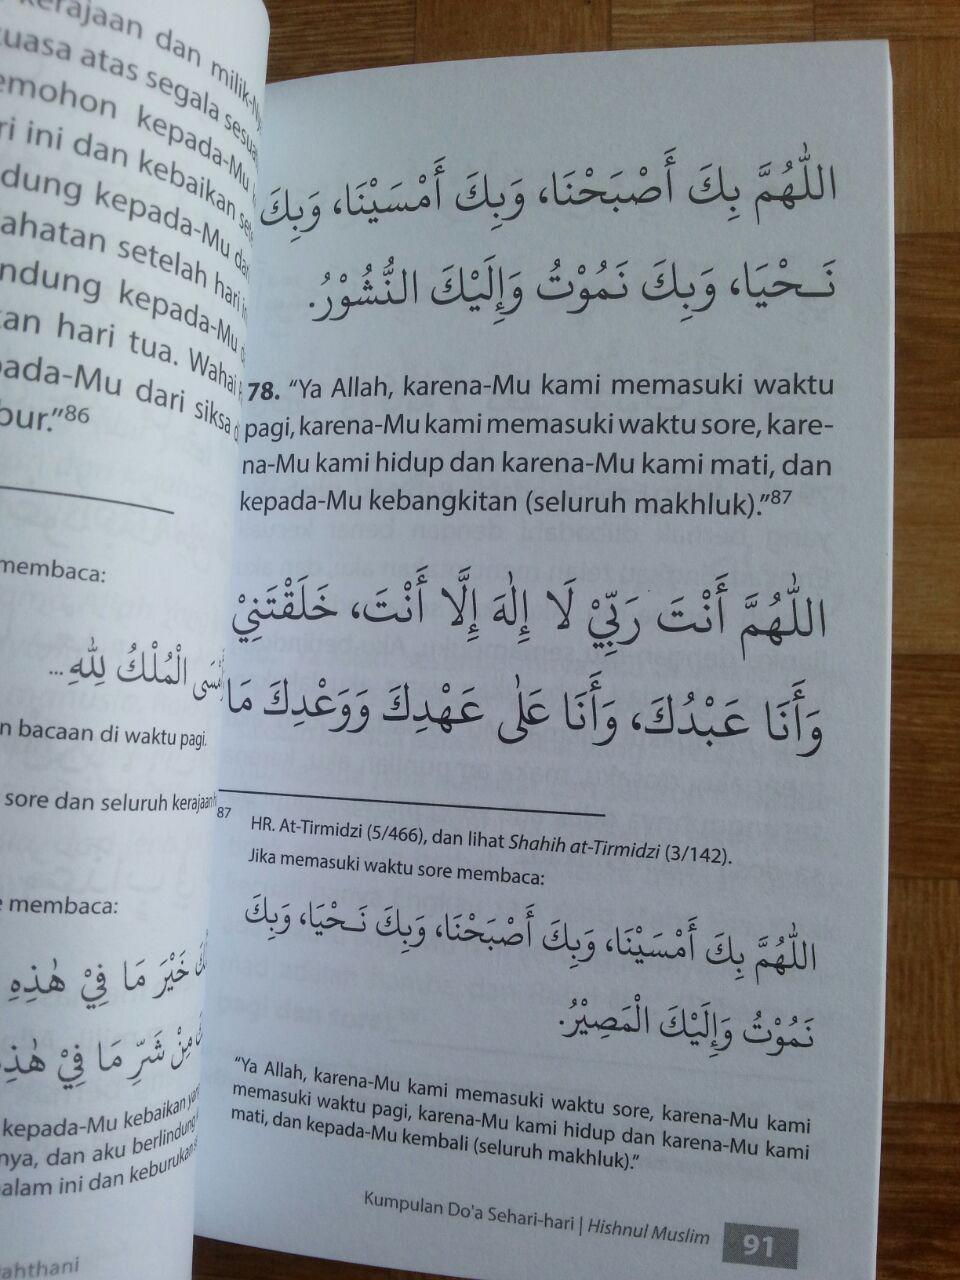 kerajaan dan milik-Nya
kuasa atas segala
memohon kepada-Mu
ri ini dan kebaikan
dung kepada-Mu
ahatan setelah hari
ndung kepada-Mu
kan hari tua. Wahai
pada-Mu dari siksa
bur."86
membaca:
الْمُلْكُ لِلّٰهِ ...
n bacaan di waktu pagi.
sore dan seluruh
membaca:
خَيْرَ مَا فِيْ هٰذِهِ
مِنْ شَرِّ مَا فِيْ
kepada-Mu kebaikan
nya, dan aku
alam ini dan
ahthani
اللّٰهُمَّ بِكَ أَصْبَحْنَا، وَبِكَ أَمْسَيْنَا، وَبِكَ
نَـحْيَا، وَبِكَ نَمُوْتُ وَإِلَيْكَ النُّشُوْرُ.
78. "Ya Allah, karena-Mu kami memasuki waktu
pagi, karena-Mu kami memasuki waktu sore, kare-
na-Mu kami hidup dan karena-Mu kami mati, dan
kepada-Mu kebangkitan (seluruh makhluk)."87
اللّٰهُمَّ أَنْتَ رَبِّيْ لَا إِلٰهَ إِلَّا أَنْتَ، خَلَقْتَنِيْ
وَأَنَا عَبْدُكَ، وَأَنَا عَلٰى عَهْدِكَ وَوَعْدِكَ مَا
87 HR. At-Tirmidzi (5/466), dan lihat Shahih at-Tirmidzi (3/142).
Jika memasuki waktu sore membaca:
اللّٰهُمَّ بِكَ أَمْسَيْنَا، وَبِكَ أَصْبَحْنَا، وَبِكَ نَـحْيَا، وَبِكَ
نَمُوْتُ وَإِلَيْكَ الْمَصِيْرُ.
"Ya Allah, karena-Mu kami memasuki waktu sore, karena-Mu kami
memasuki waktu pagi, karena-Mu kami hidup dan karena-Mu kami
mati, dan kepada-Mu kembali (seluruh makhluk)."
Kumpulan Do'a Sehari-hari | Hishnul Muslim 91